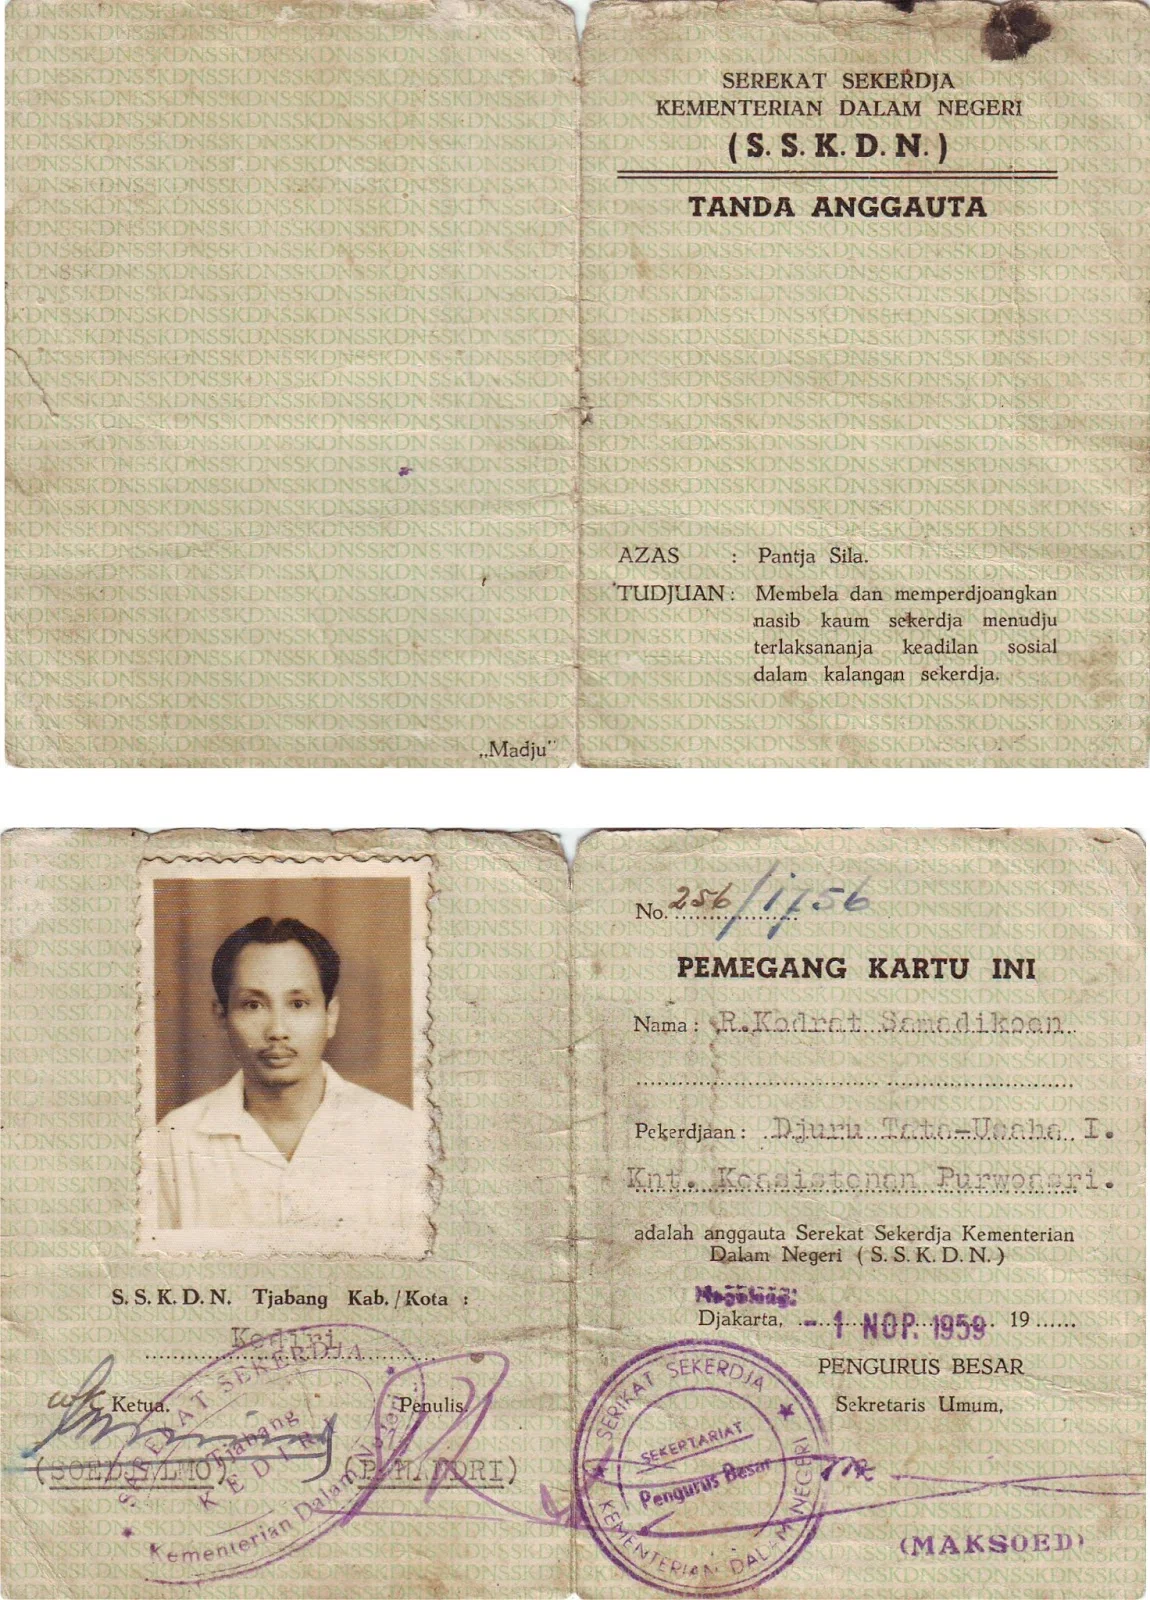 SEREKAT SEKERDJA
KEMENTERIAN DALAM NEGERI
( S. S. K. D. N. )
TANDA ANGGAUTA
AZAS : Pantja Sila.
TUDJUAN : Membela dan memperdjoangkan
nasib kaum sekerdja menudju
terlaksananja keadilan sosial
dalam kalangan sekerdja.
„Madju"
S. S. K. D. N. Tjabang Kab. / Kota :
Kediri
wk Ketua. Penulis.
(P. HANDRI)
SEREKAT SEKERDJA
Tjabang
KEDIRI
Kementerian Dalam Negeri
No. 256/1/56
PEMEGANG KARTU INI
Nama : R.Kodrat Samadikoen
Pekerdjaan : Djuru Tata-Usaha I.
Knt. Koasistenan Purwoasri.
adalah anggauta Serekat Sekerdja Kementerian
Dalam Negeri ( S. S. K. D. N. )
Magelang.
Djakarta, - 1 NOP. 1959 19
PENGURUS BESAR
Sekretaris Umum,
SERIKAT SEKERDJA
SEKERTARIAT
Pengurus Besar
KEMENTERIAN DALAM NEGERI
(MAKSOED)